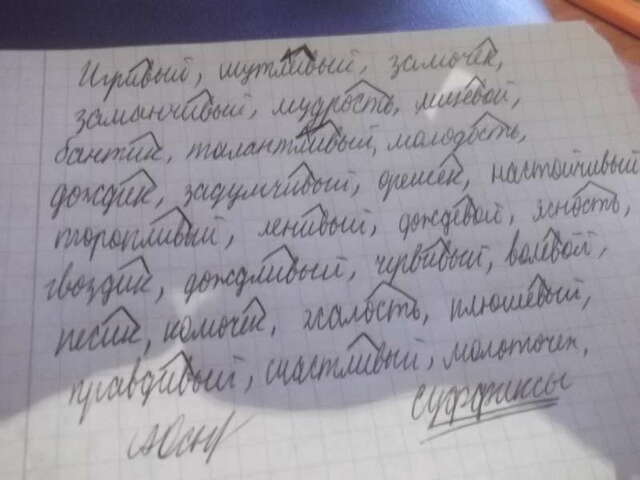 Игривый, шутливый, замочек,
заманчивый, мудрость, милевой,
бантик, талантливый, молодость,
дождик, задумчивый, орешек, настойчивый
торопливый, ленивый, дождевой, ясность,
гвоздик, дождливый, червивый, волевой,
песик, комочек, жалость, плюшевый,
правдивый, счастливый, молоточек,
суффиксы